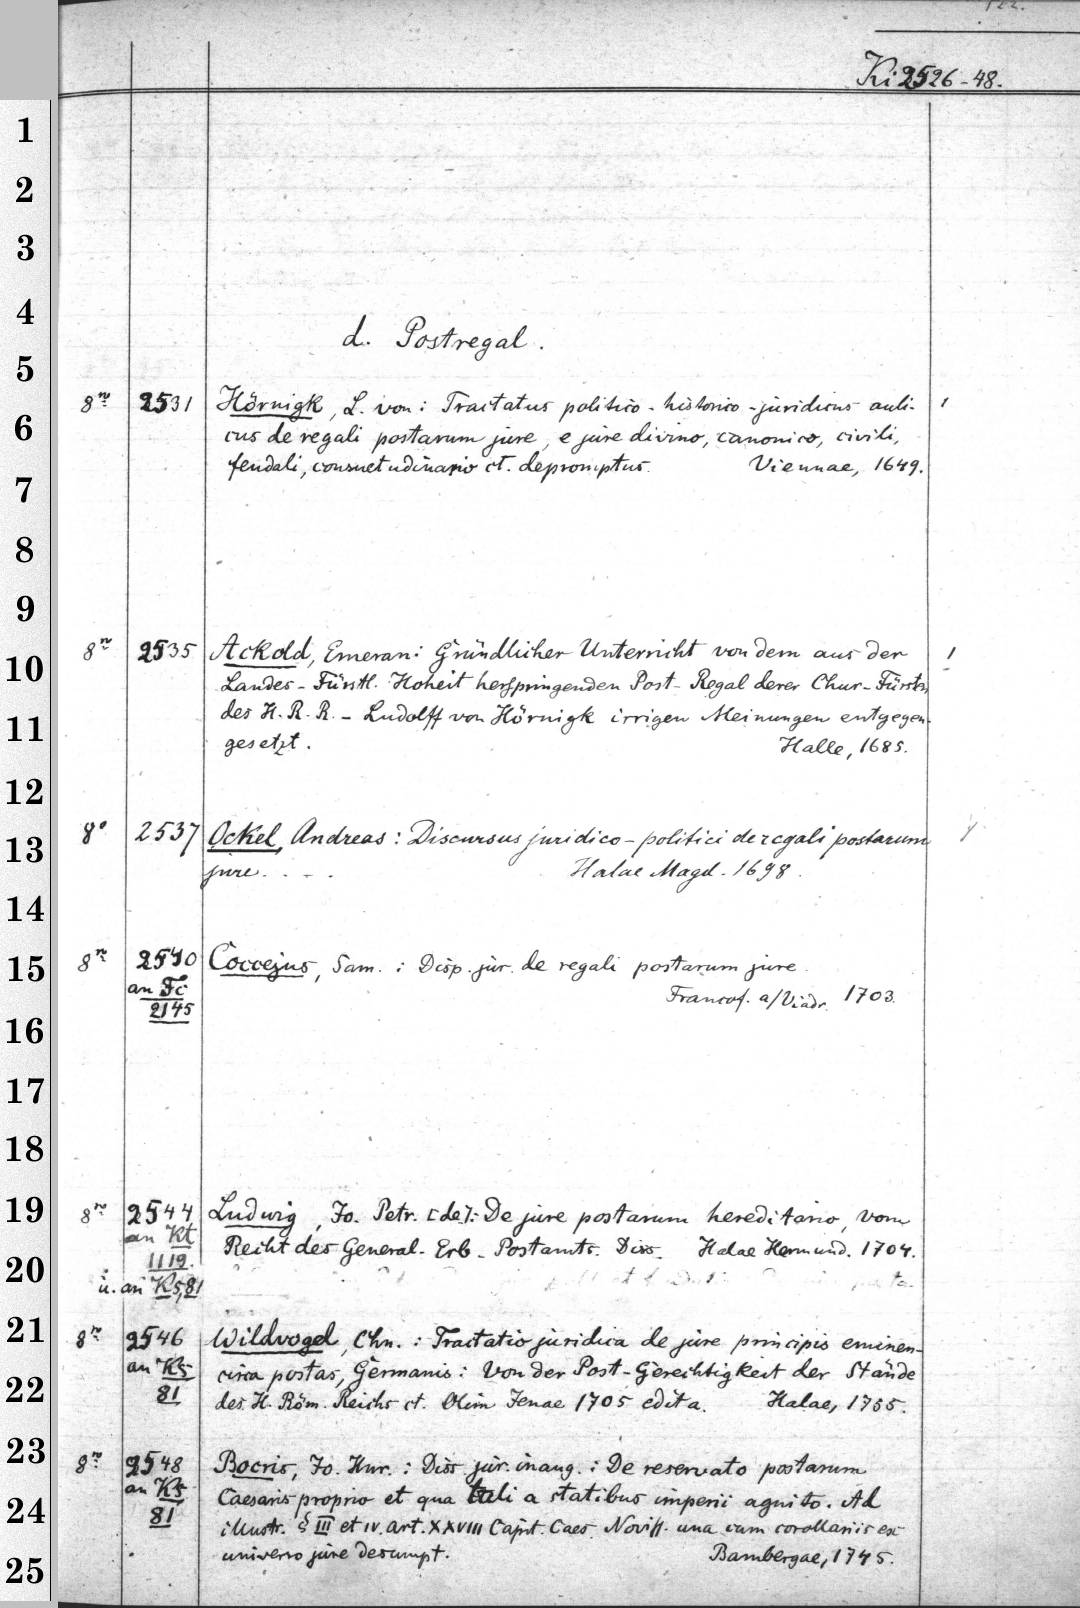 Ki 2526-48.
1
2
3
4
d. Postregal.
5
8º 2531 Hörnigk, L. von: Tractatus politico-historico-juridicus auli-
6
cus de regali postarum jure, e jure divino, canonico, civili,
feudali, consuetudinario ct. depromptus. Viennae, 1649.
7
8
9
8º 2535 Ackold, Emeran: Gründlicher Unterricht von dem aus der
10
Landes-Fürstl. Hoheit herspringenden Post-Regal derer Chur-Fürsten
des H. R. R. - Ludolff von Hörnigk irrigen Meinungen entgegen-
11
gesetzt. Halle, 1685.
12
8º 2537 Ockel, Andreas: Discursus juridico-politici de regali postarum
13
jure. . . . Halae Magd. 1698.
14
8º 2540 Coccejus, Sam.: Disp. jür. de regali postarum jure.
15
an Fc
2145 Francof. a/Viadr. 1703.
16
17
18
19
8º 2544 Ludwig, Jo. Petr. [de]: De jure postarum hereditario, vom
an Kt Recht des General-Erb-Postamts. Diss. Halae Hermund. 1704.
1119.
20
ü. an Ks,81
21
8º 2546 Wildvogel, Chn.: Tractatio juridica de jure principis eminen-
an Ks circa postas, Germanis: Von der Post-Gerechtigkeit der Stände
22
81 des H. Röm. Reichs ct. Olim Jenae 1705 edita. Halae, 1755.
23
8º 2548 Bocris, Jo. Hnr.: Diss jur. inaug.: De reservato postarum
an Ks Caesaris proprio et qua tali a statibus imperii agnito. Ad
24
81 illustr. § III et IV. art. XXVIII Capit. Caes. Noviss. una cum corollariis ex
universo jure desumpt. Bambergae, 1745.
25